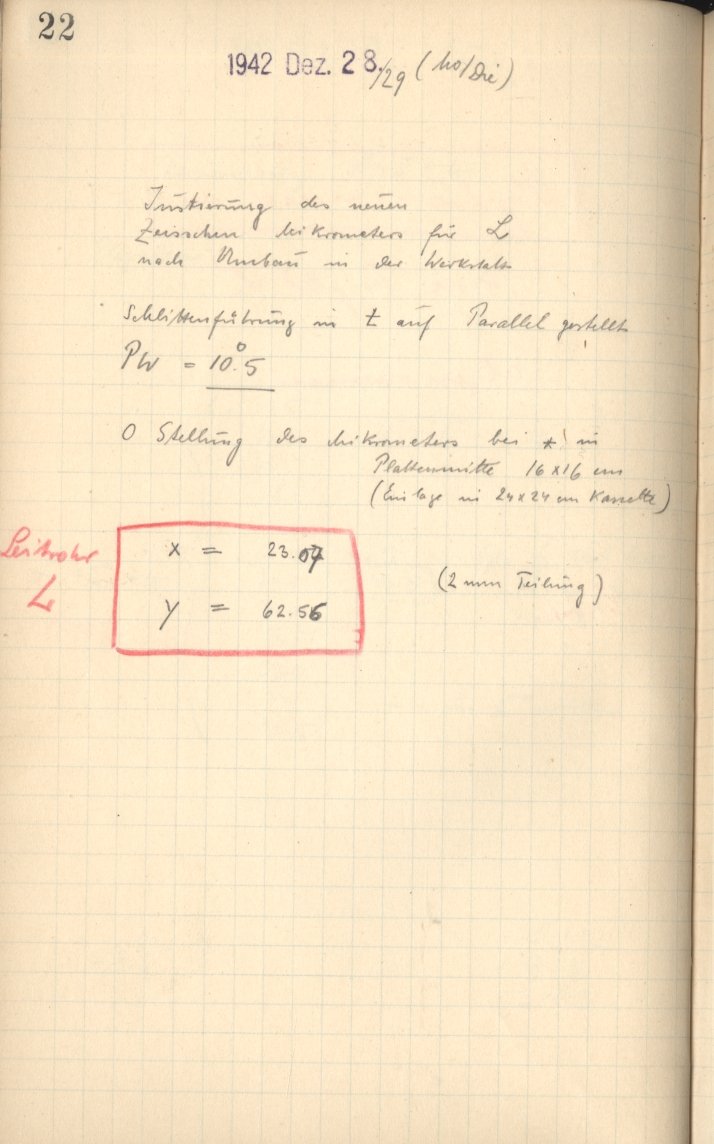 22
1942 Dez. 28./29 (Mo/Die)
Justierung des neuen
Zeissschen Mikrometers für L
nach Umbau in der Werkstatt
Schlittenführung in t auf Parallel gestellt
PW = 10°.5
0 Stellung des Mikrometers bei * in
Plattenmitte 16 x 16 cm
(Einlage in 24 x 24 cm Kassette)
Leitrohr
L
x = 23.07
y = 62.56
(2 mm Teilung)